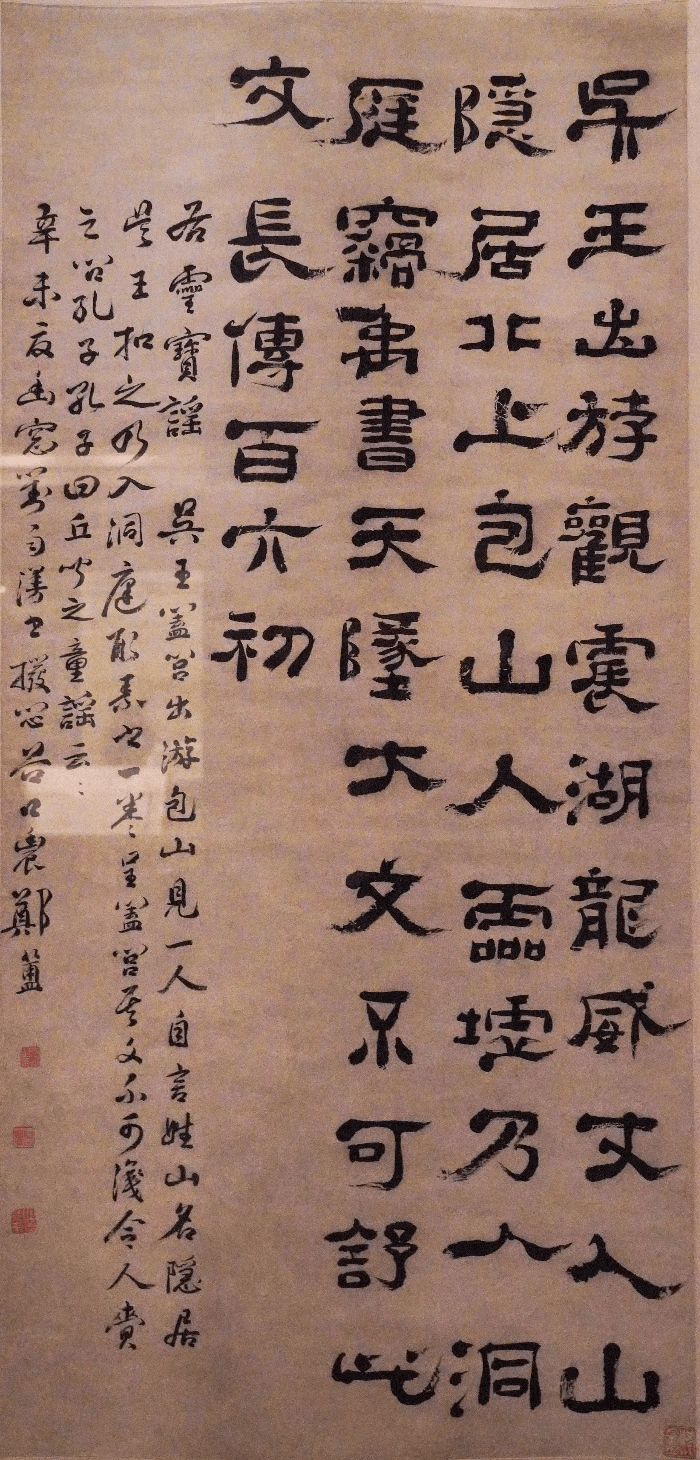 吳王出游觀震湖龍威丈人山
隱居北上包山人靈墟乃入洞
庭竊禹書天墬大文不可舒此
文長傳百六初
右靈寶謠 吳王蓋閭出游包山見一人自言姓山名隱居
吳王扣之乃入洞庭取素書一卷呈蓋閭其文不可識令人賫
之問孔子孔子曰丘聞之童謠云〻
辛未夏幽窗對雨漫書撥悶谷口農鄭簠